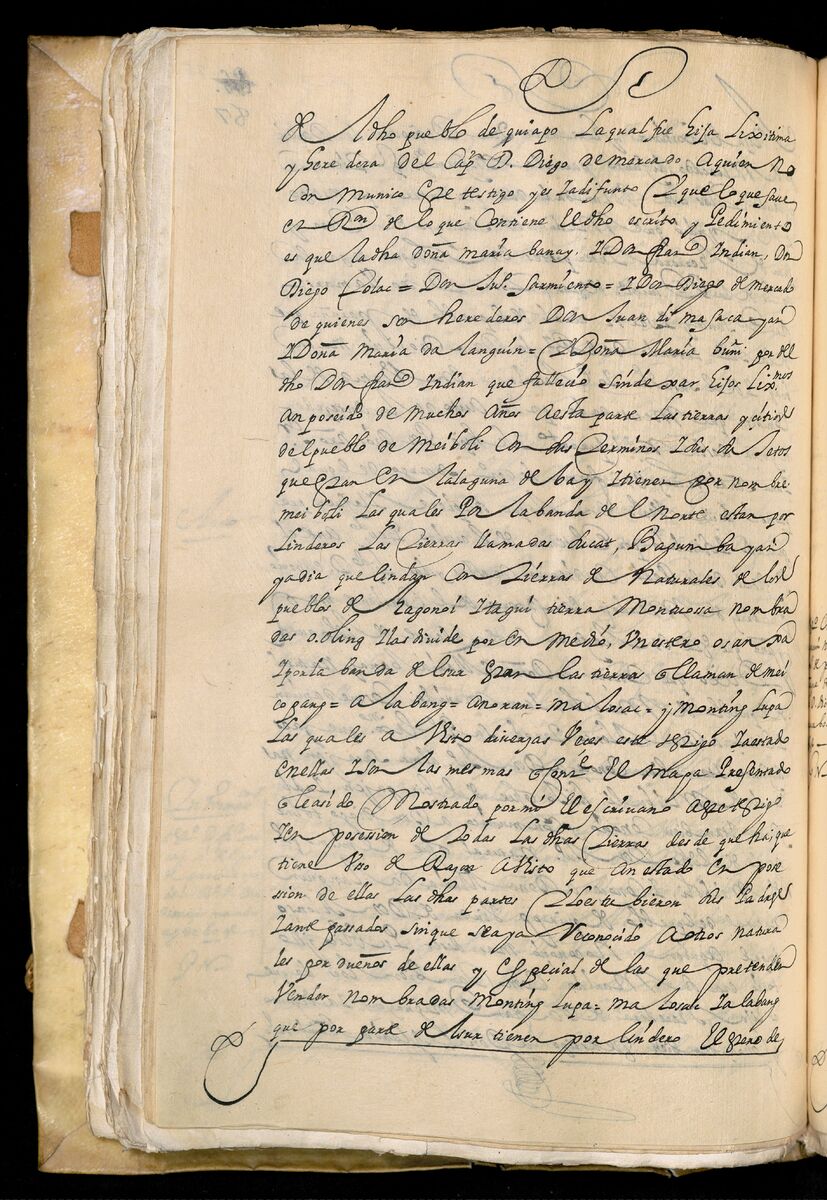 de el dho pueblo de quiapo La qual fue hija Lixitima
y heredera del Capn D. Diego de mercado Aquien No
Con munico Este testigo y es ya difunto Y que lo que save
en Ron de lo que Contiene El dho escrito y Pedimiento
es que la dha doña maria banay, I Don frando Indian, Don
Diego Colac = Don Jul. Sarmiento = I Don Diego de mercado
de quienes son herederos Don Juan dimasacayan
I Doña Maria dalanguin = Y Doña Maria buñi por el
dho Don frando Indian que fallecio sin dexar hijos Lixmos
an poseido de muchos Años a esta parte Las tierras y citios
del pueblo de meiboli Con sus Terminos I dus
que Estan En la laguna de bay I tienen por nombre
meiboli Las quales Por la banda de el Norte estan por
Linderos Las Tierras llamadas Bagumbayan
que lindan Con Tierras de Naturales de los
pueblos de I tagui tierra Montuossa nombra
das I las divide por En medio, Un estero
I por la banda del sur Estan las tierras q llaman de mei
cogang = alabang = anoran = malosac = y Monting Lupa
Las quales a Visto diverzas Veces este testigo I a estado
En ellas I son las mesmas q Contte El mapa Presentado
q le a sido Mostrado por mi El escrivano a este testigo
I en posession de todas Las dhas Tierras desde que
tiene Uso de Razon A Visto que an estado En pose
ssion de ellas Las dhas partes Y lo estubieron sus Padres
I antepassados sin que se aya Reconocido a otros natura
les por dueños de ellas y Especial de las que pretenden
Vender nombradas Monting Lupa = malosac I alabang
que por parte del sur tienen por lindero El estero de